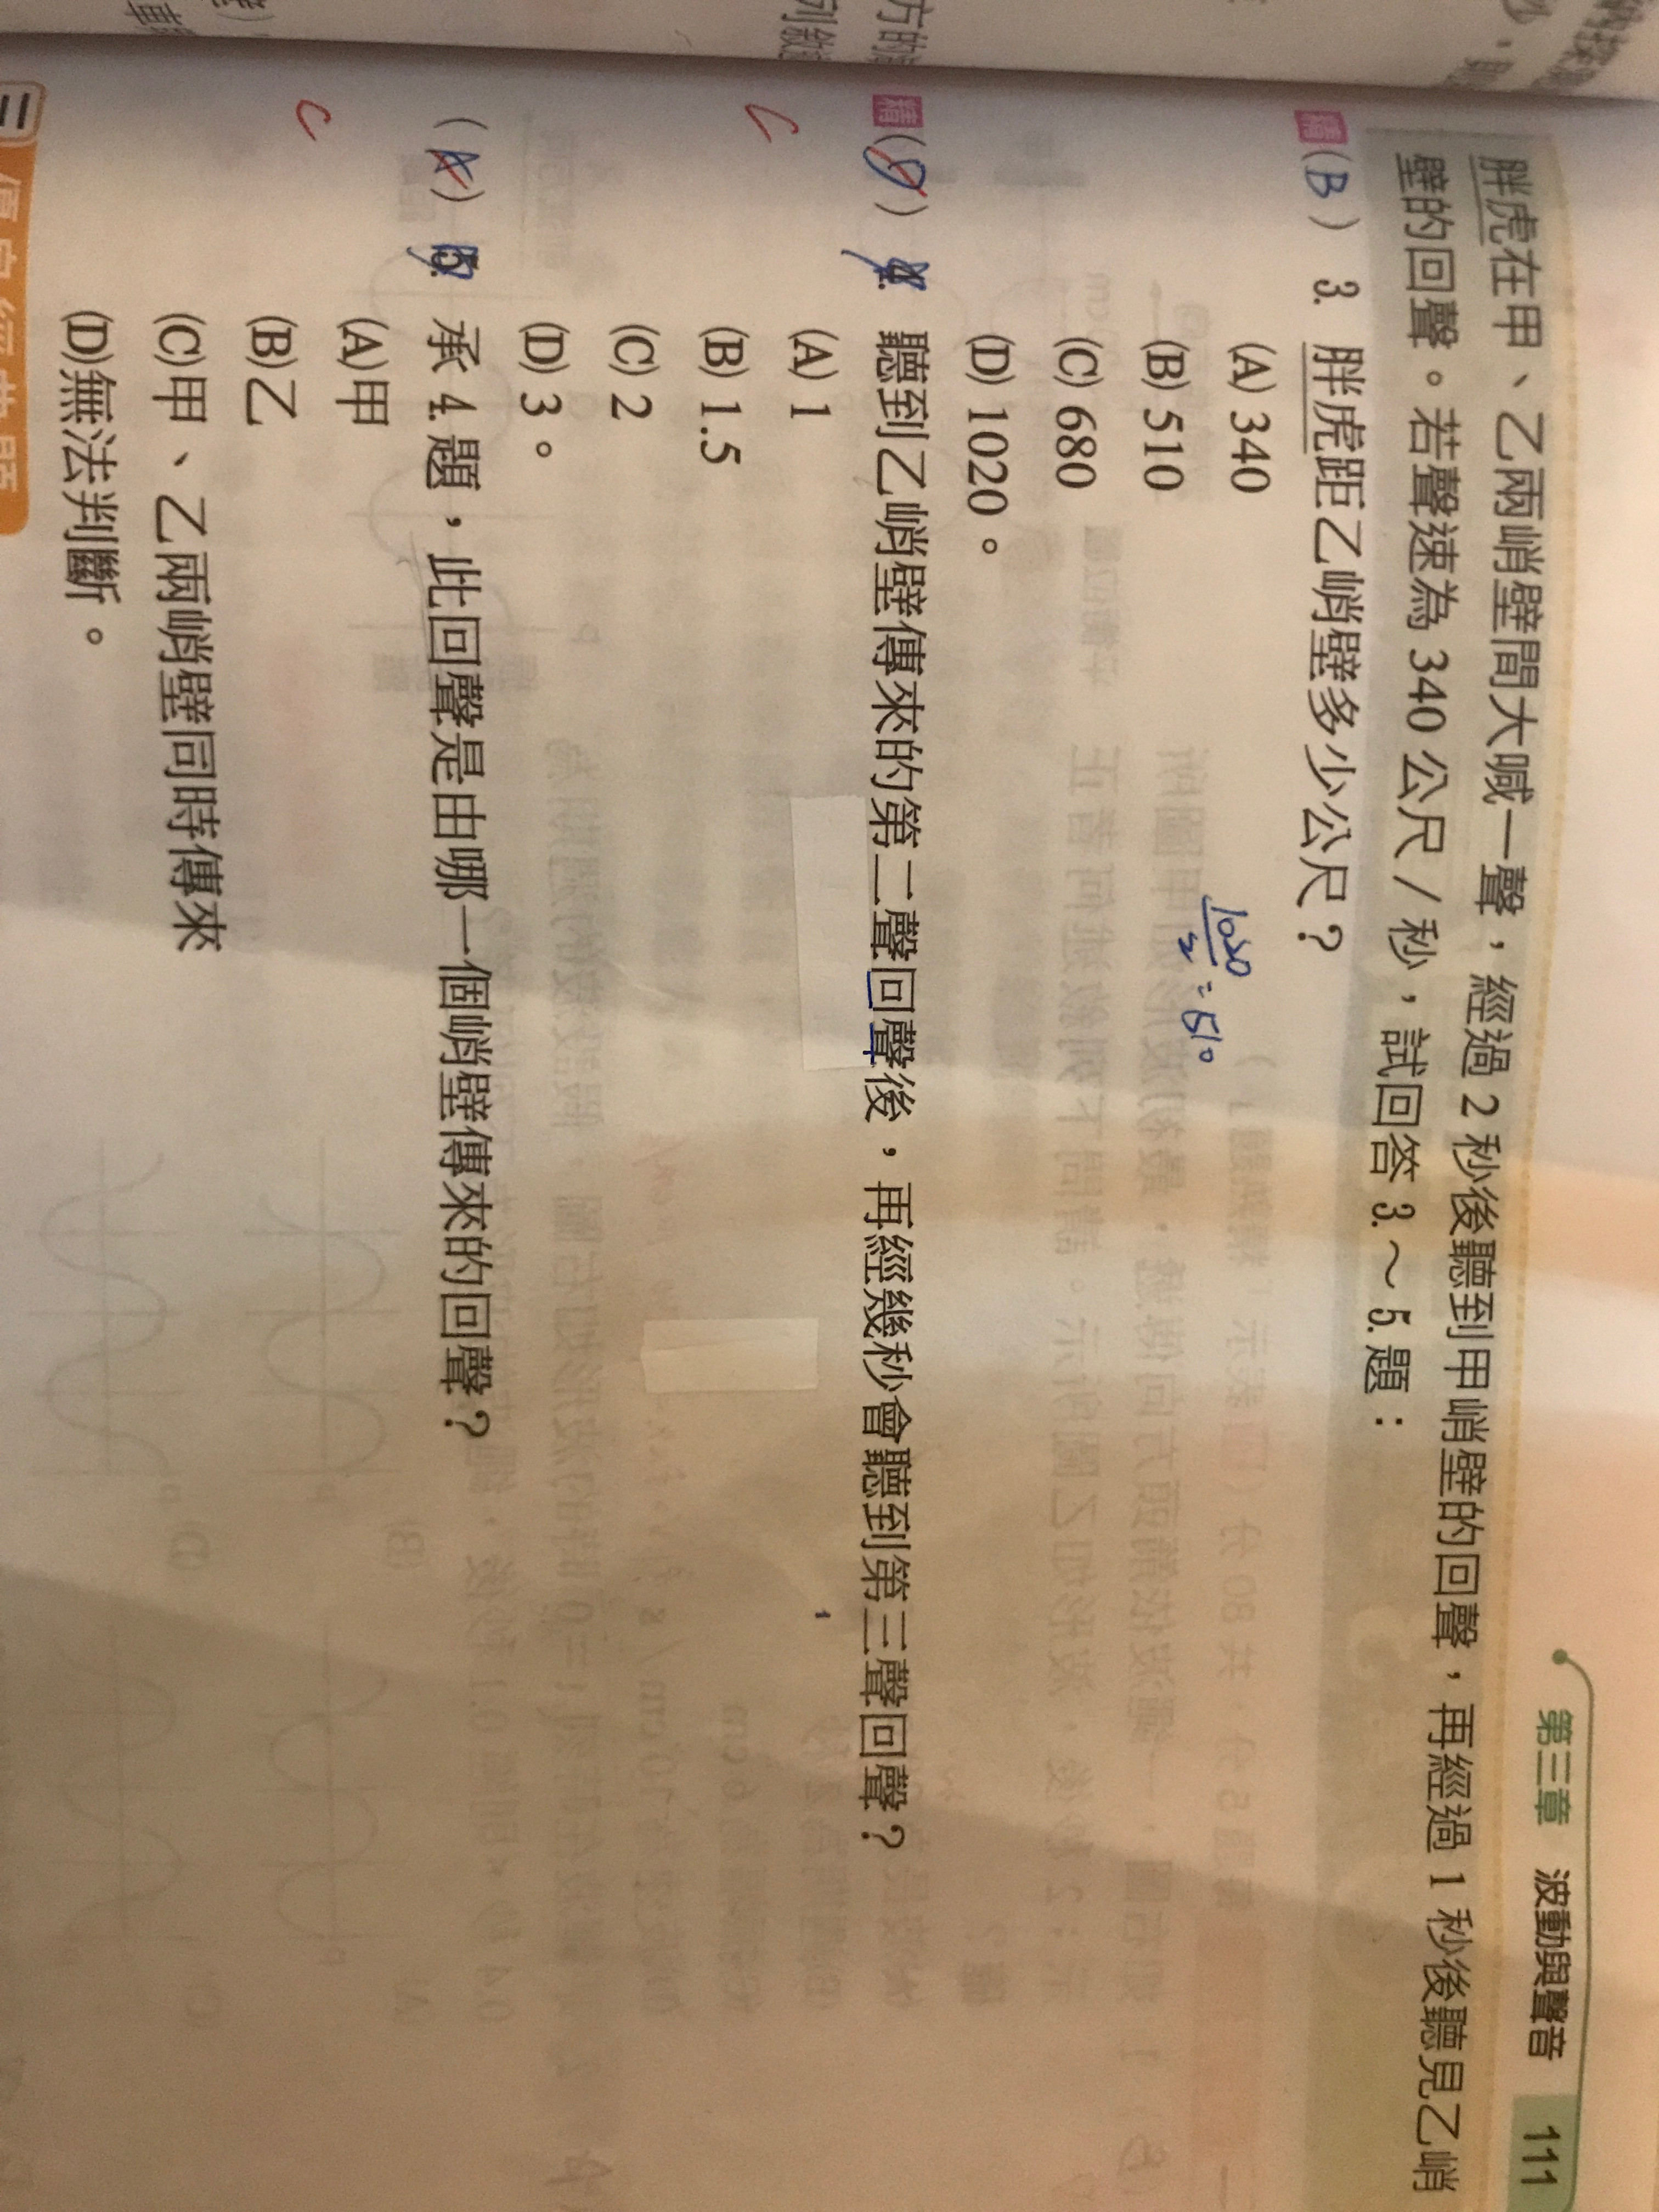 第三章 波動與聲音 111
胖虎在甲、乙兩峭壁間大喊一聲，經過 2 秒後聽到甲峭壁的回聲，再經過 1 秒後聽見乙峭
壁的回聲。若聲速為 340 公尺／秒，試回答 3.～5.題：
精(B) 3. 胖虎距乙峭壁多少公尺？
(A) 340
(B) 510
(C) 680
(D) 1020。
1020/2 = 510
精( ) 4. 聽到乙峭壁傳來的第二聲回聲後，再經幾秒會聽到第三聲回聲？
(A) 1
(B) 1.5
(C) 2
(D) 3。
C
(A) 5. 承 4.題，此回聲是由哪一個峭壁傳來的回聲？
(A)甲
(B)乙
(C)甲、乙兩峭壁同時傳來
(D)無法判斷。
C
三
方的
列敘